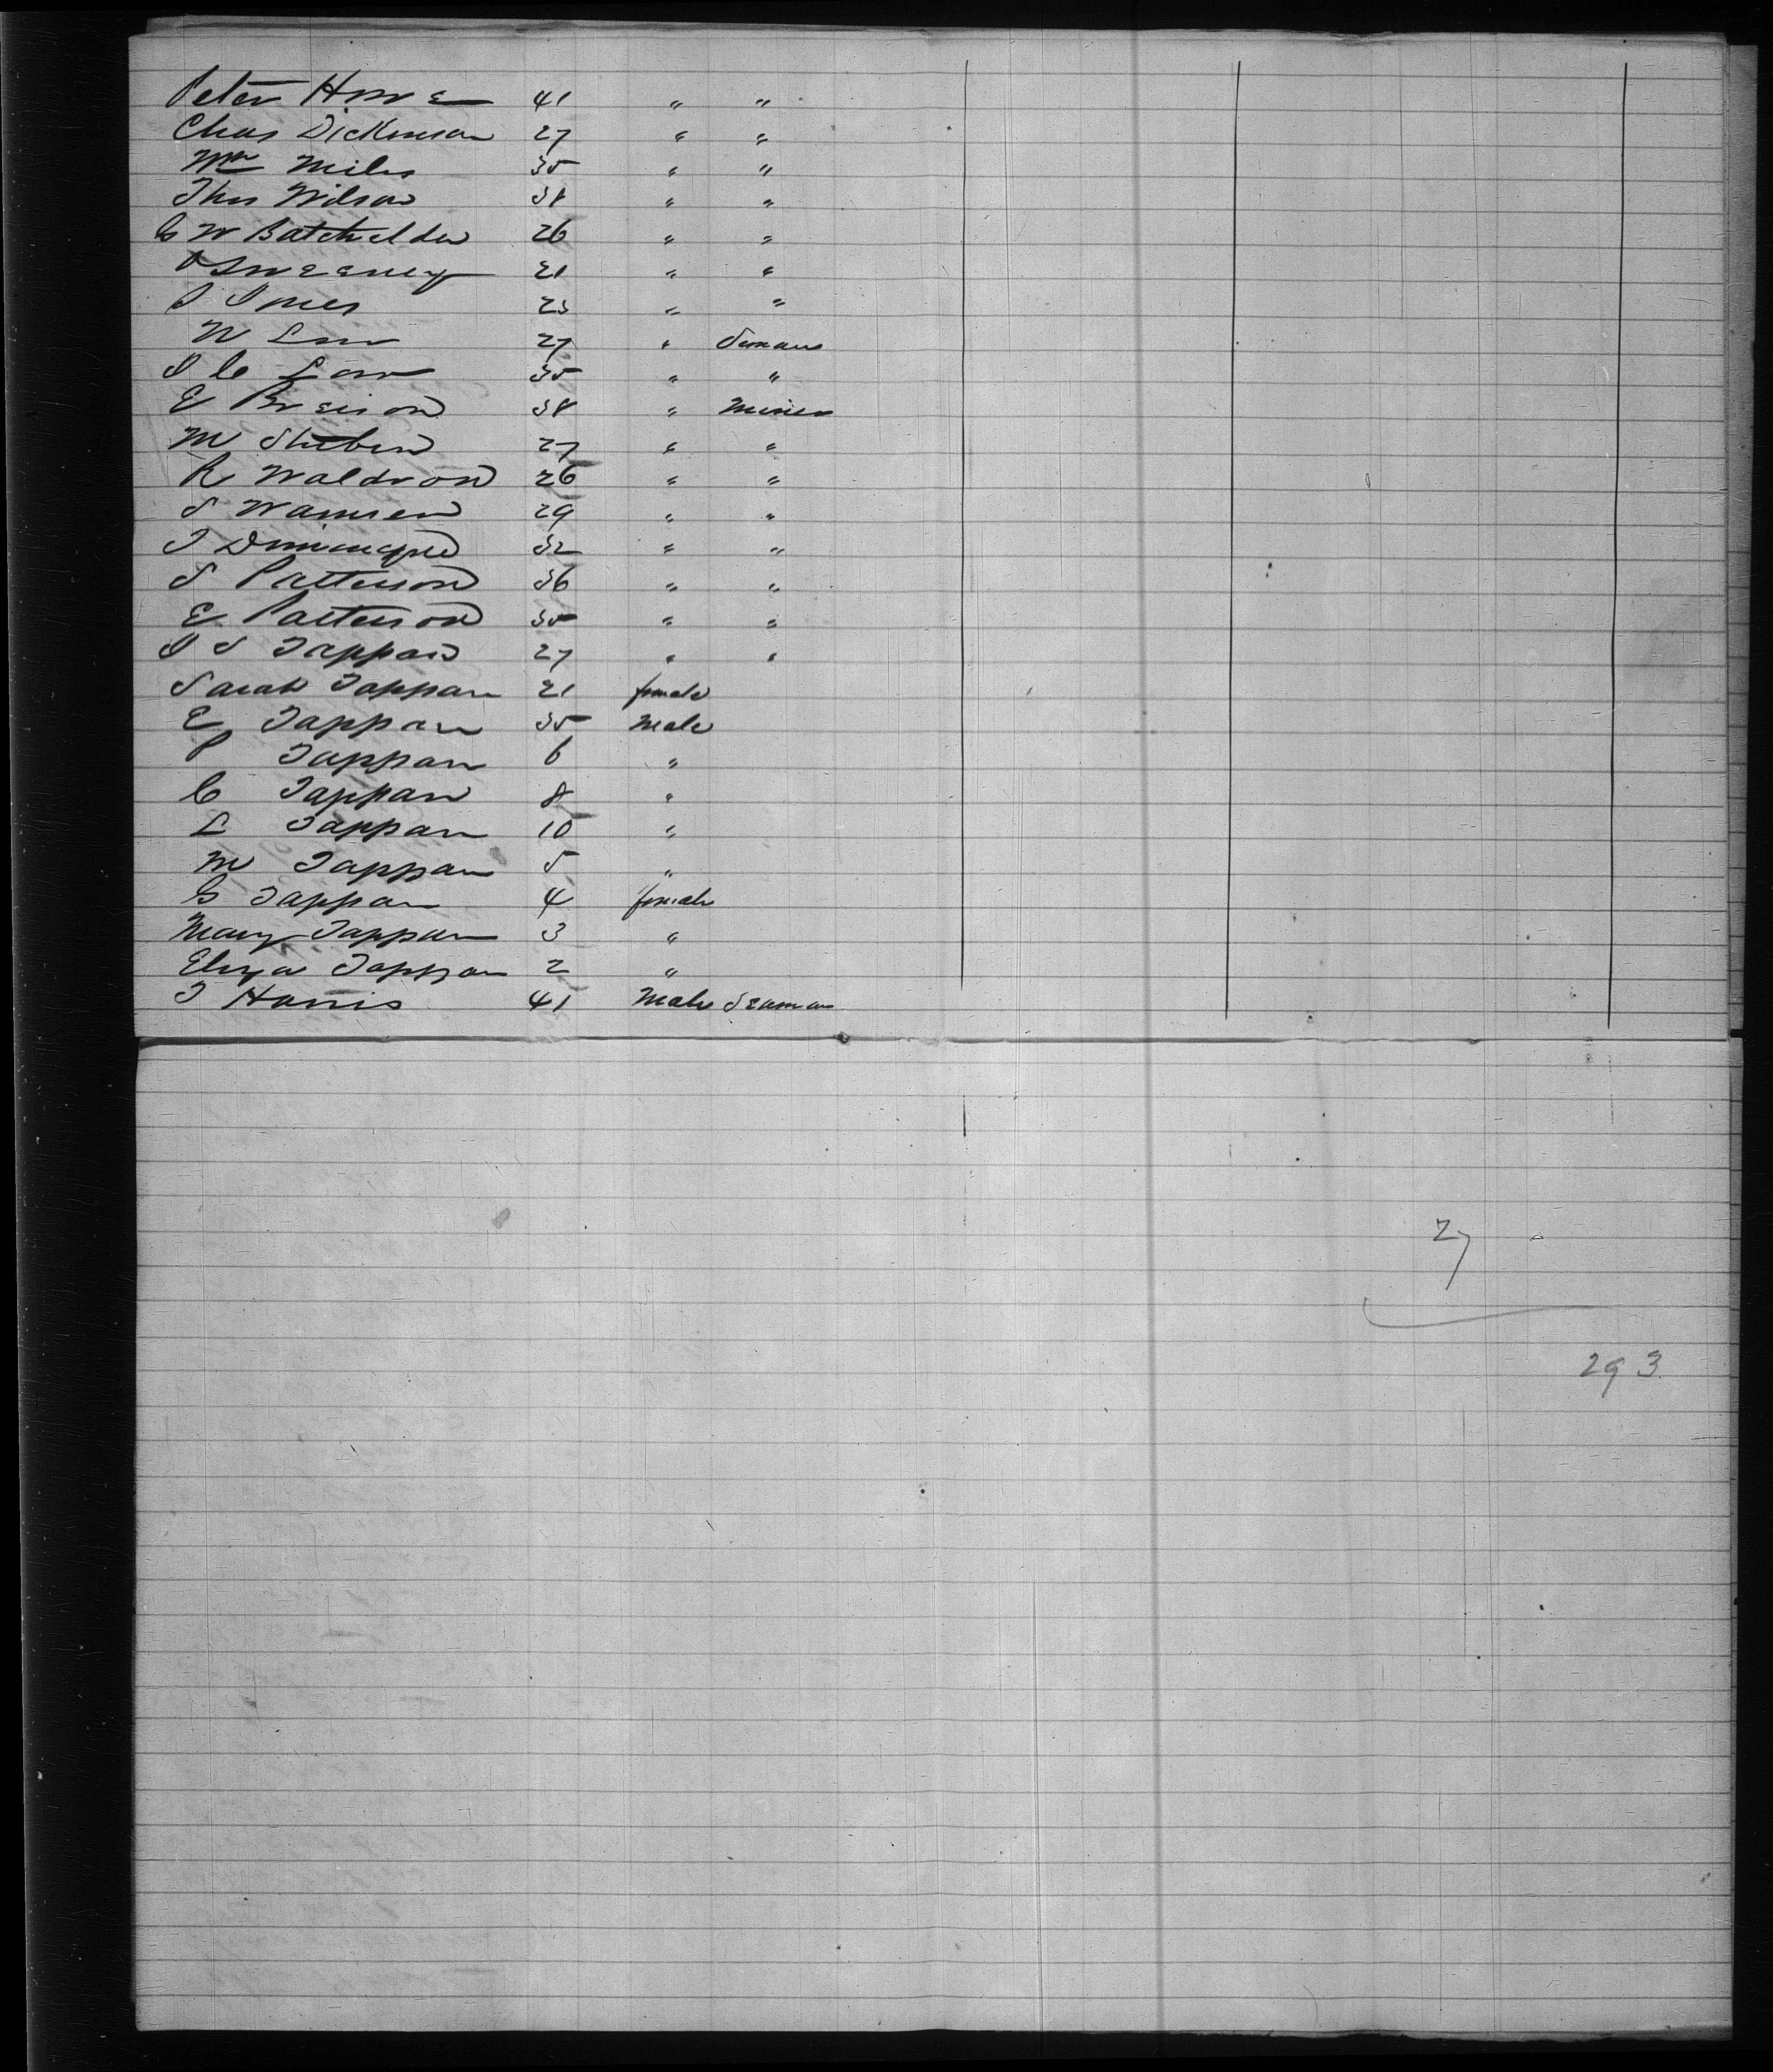 Peter Howe 41 " "
Chas Dickenson 27 " "
Wm Miles 35 " "
Thos Wilson 38 " "
G W Batchelder 26 " "
P Sweeney 21 " "
J Jones 23 " "
W Low 27 " Seman
J C Low 35 " "
E 38 " Miner
M 27 " "
R Waldron 26 " "
S 29 " "
J 32 " "
S Patterson 36 " "
E Patterson 35 " "
J S Tappan 27 " "
Sarah Tappan 21 female
E Tappan 35 Male
P Tappan 6 "
C Tappan 8 "
L Tappan 10 "
M Tappan 5 "
G Tappan 4 female
Mary Tappan 3 "
Eliza Tappan 2 "
J Harris 41 Male Seaman
27
293